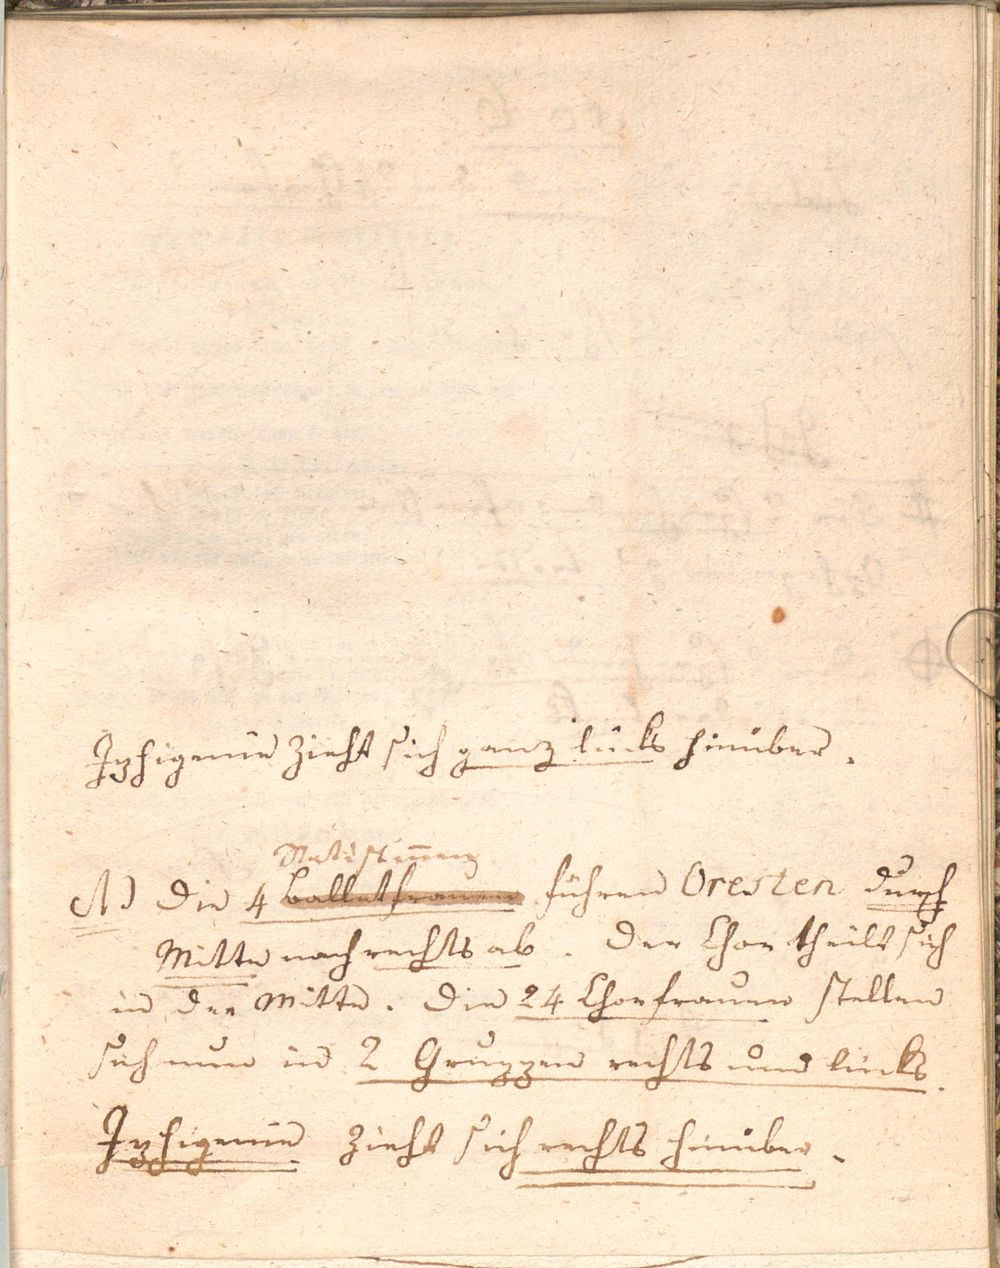 Iphigenie zieht sich ganz links hinüber.
Statistinnen
A) Die 4 balletfrauen führen Oresten durch
Mitte nach rechts ab. Der Chor theilt sich
in der Mitte. Die 24 Chorfrauen stellen
sich nun in 2 Gruppen rechts und links.
Iphigenie zieht sich rechts hinüber.